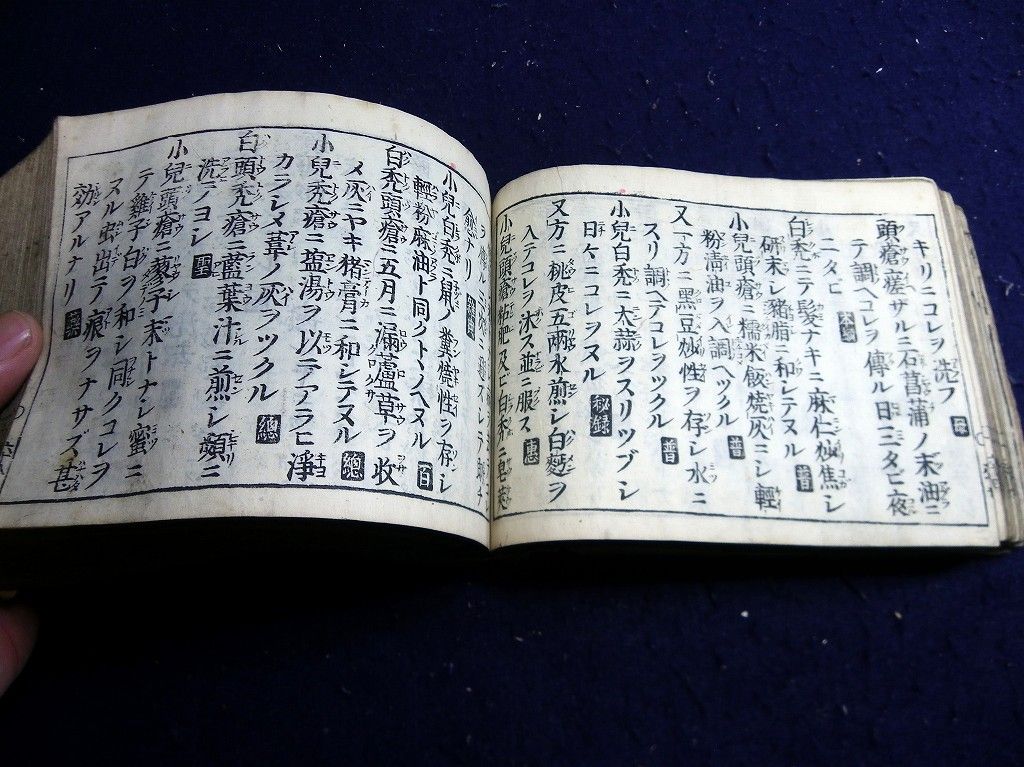 キリニコレヲ洗フ
頭瘡瘥サルニ石菖蒲ノ末油ニ
テ調ヘコレヲ傅ル日ニ二タビ夜
ニタビ 本綱
白禿ニテ髪ナキニ麻仁炒焦シ
研末シ豬脂ニ和シテヌル 普
小兒頭瘡ニ糯米飯焼灰ニシ輕
粉清油ヲ入調ヘツクル 普
又一方ニ黒豆炒性ヲ存シ水ニ
スリ調ヘテコレヲツクル 普
小兒白禿ニ大蒜ヲスリツブシ
日々ニコレヲヌル 秘録
又方ニ桃皮五兩水煎シ白麪ヲ
入テコレヲ沐ス並ニ服ス 惠
小兒頭瘡
小兒白禿ニ鼠ノ糞焼性ヲ存シ
輕粉麻油ト同クトノヘヌル 百
白禿頭瘡ニ五月ニ漏蘆草ヲ收
メ灰ニヤキ猪膏ニ和シテヌル 總
小兒禿瘡ニ塩湯ヲ以テアラヒ淨
カラシメ葦ノ灰ヲツクル 總
白頭禿瘡ニ藍葉汁ニ煎シ頻ニ
洗テヨシ 聖
小兒頭瘡ニ豕子末トナシ蜜ニ
テ雞子白ヲ和シ同クコレヲ
ヌル虫出テ痕ヲナサズ甚
効アルナリ